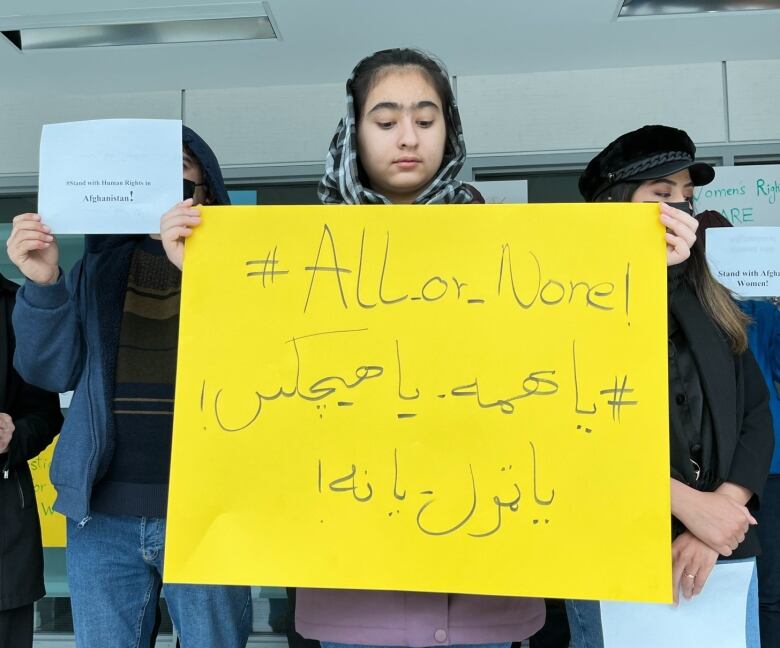 #Stand with Human Rights in
Afghanistan!
#All_or_None!
#یا همه - یا هیچکس!
یا ټول - یا نه!
Womens Rig
ARE
Stand with Afgha
Women!